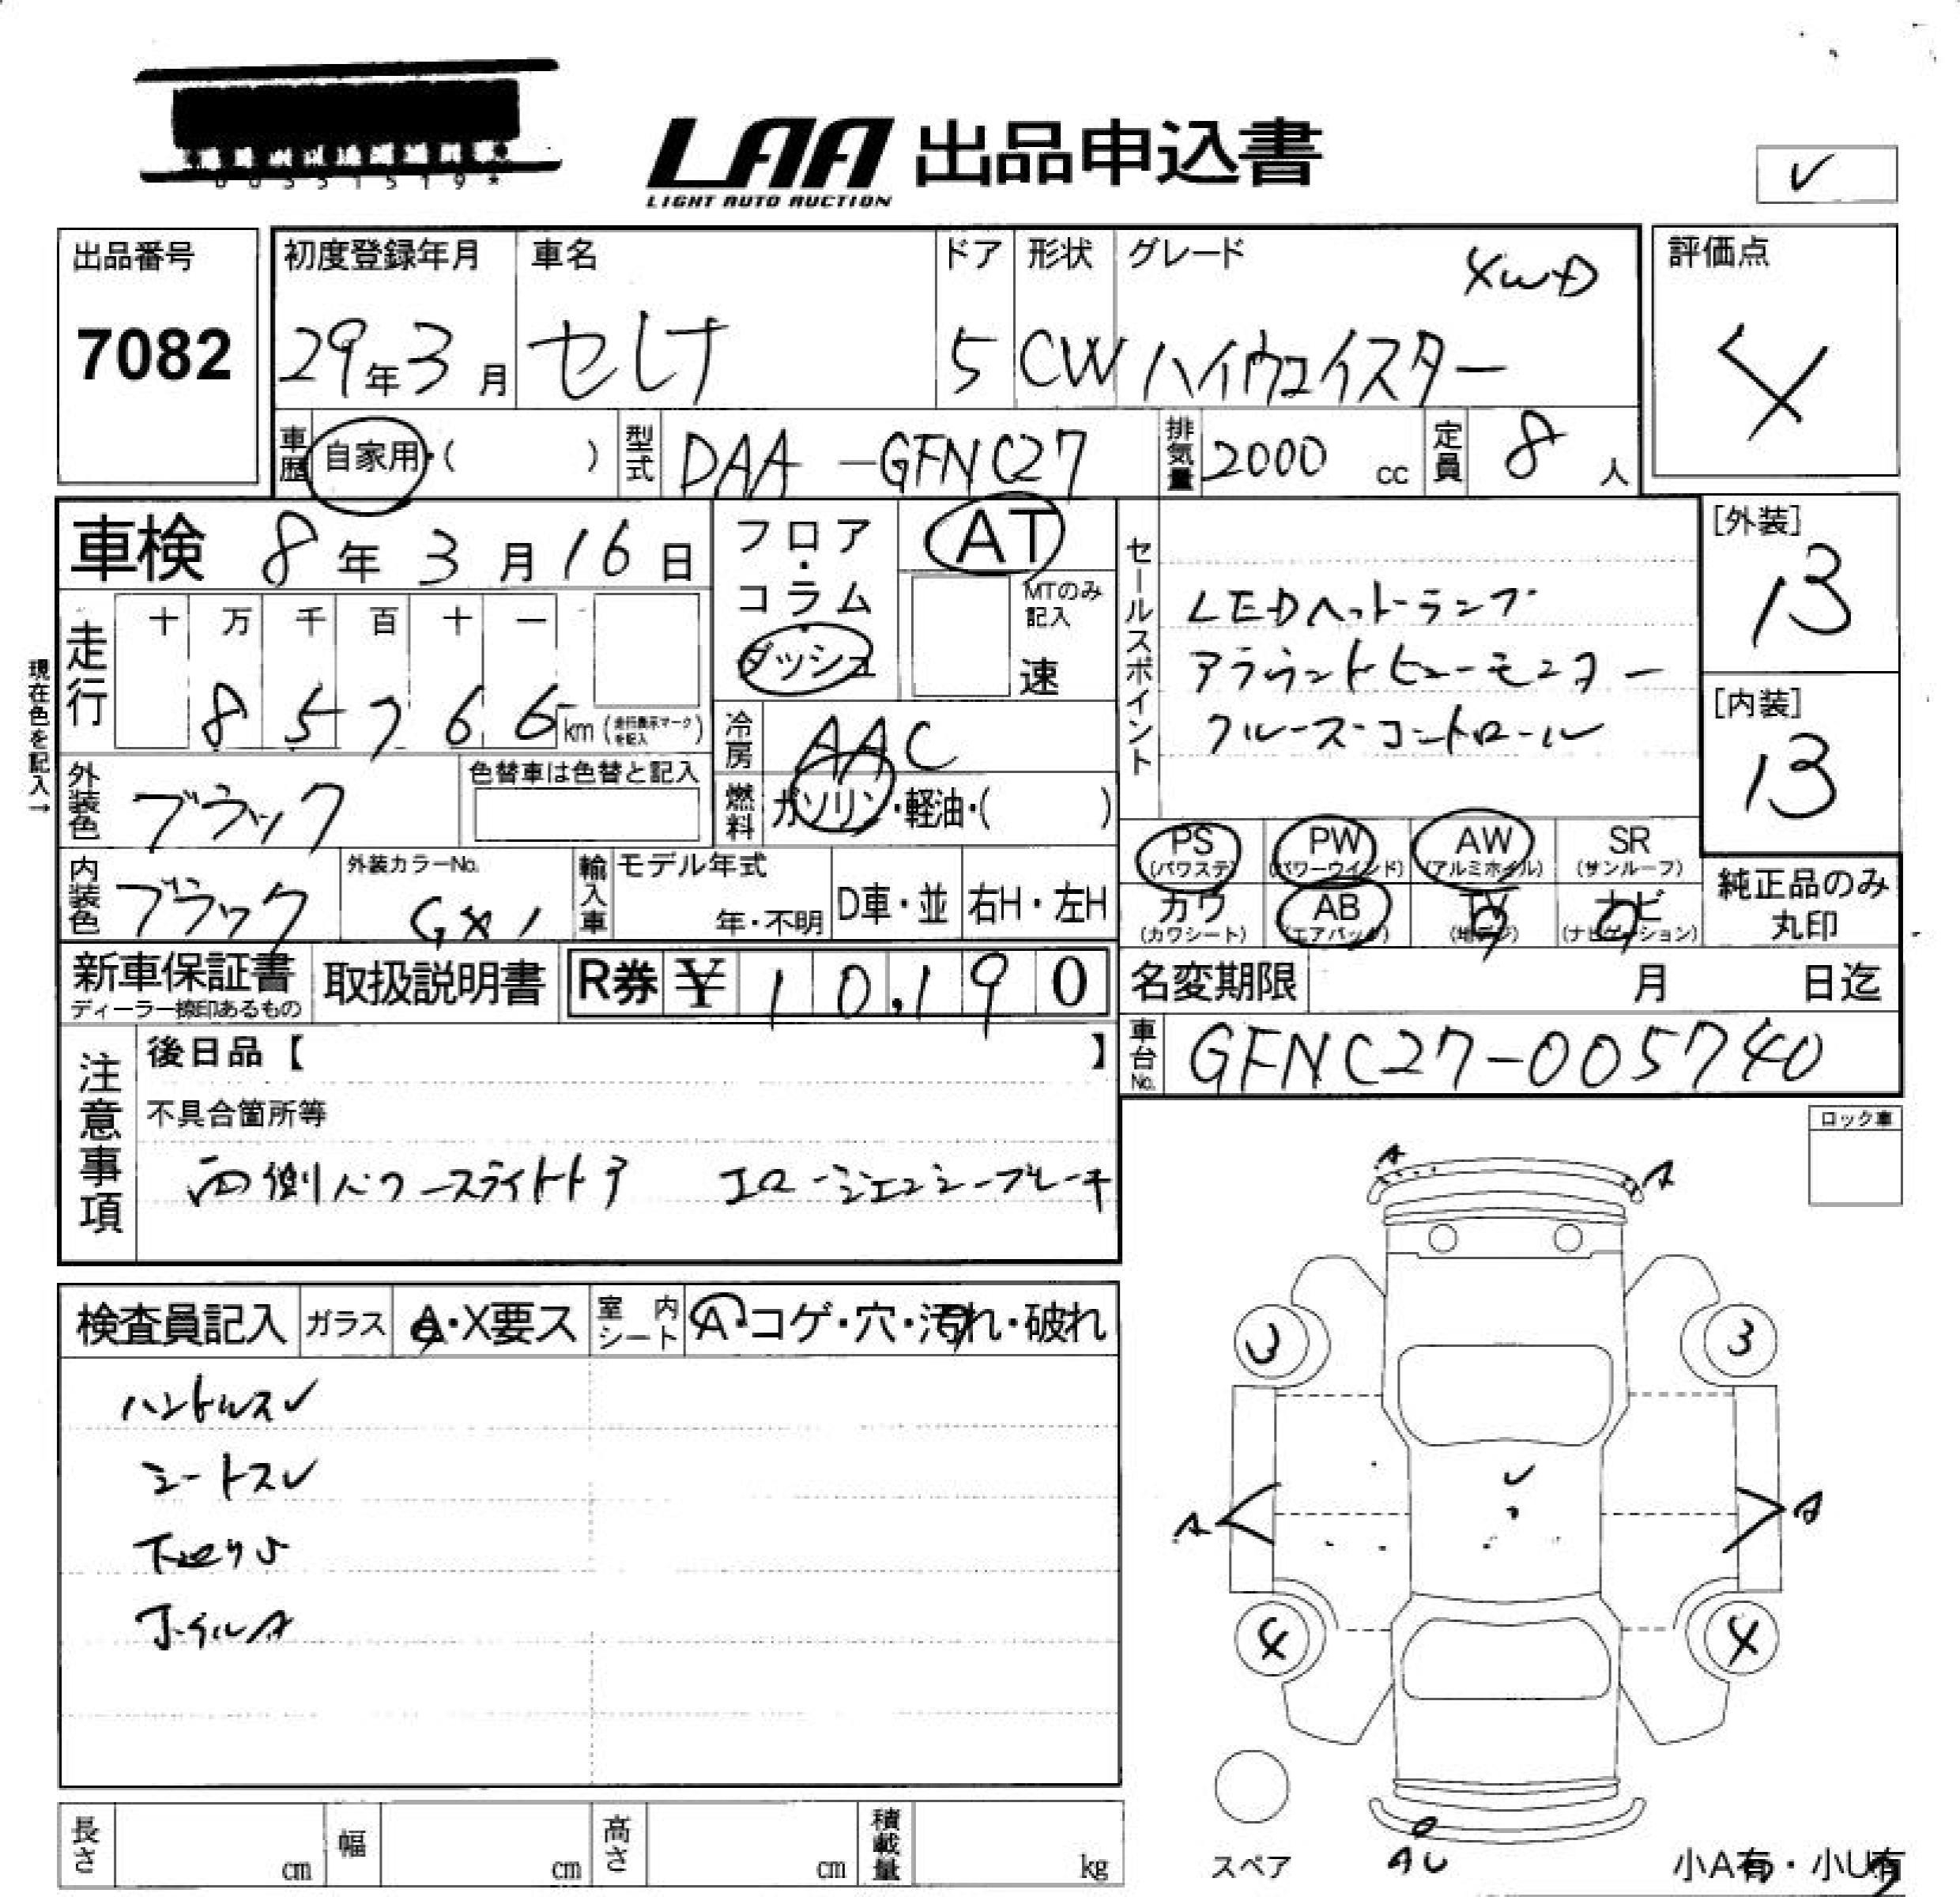 LAA 出品申込書
LIGHT AUTO AUCTION
✓
出品番号
7082
初度登録年月
29年3月
車名
セレナ
ドア
5
形状
CW
グレード
4WD
ハイウェイスター
評価点
4
車歴
自家用・( )
型式
DAA-GFNC27
排気量
2000 cc
定員
8 人
車検 8年3月16日
フロア・コラム
ダッシュ
AT
MTのみ記入
速
現在色を記入→
走行
十 万 千 百 十 一
8 5 7 6 6 km (走行表示マークを記入)
冷房
AAC
燃料
ガソリン・軽油・( )
外装色
ブラック
色替車は色替と記入
内装色
ブラック
外装カラーNo.
輸入車
モデル年式
年・不明
D車・並
右H・左H
セールスポイント
LEDヘットランプ
アラウントビューモニター
クルーズコントロール
[外装]
13
[内装]
13
PS
(パワステ)
PW
(パワーウインド)
AW
(アルミホイル)
SR
(サンルーフ)
カワ
(カワシート)
AB
(エアバック)
TV
(地デジ)
ナビ
(ナビゲーション)
純正品のみ
丸印
新車保証書
ディーラー捺印あるもの
取扱説明書
R券 ¥ 10,190
名変期限 月 日迄
車台No.
GFNC27-005740
注意事項
後日品【 】
不具合箇所等
両側パワースライトトア エマージェンシーブレーキ
ロック車
検査員記入
ガラス
A・X要ス
室内シート
A・コゲ・穴・汚れ・破れ
ハンドルスレ
シートスレ
ホイルA
A A
3 3
A A
4 4
スペア
AU
小A有・小U有
長さ cm
幅 cm
高さ cm
積載量 kg